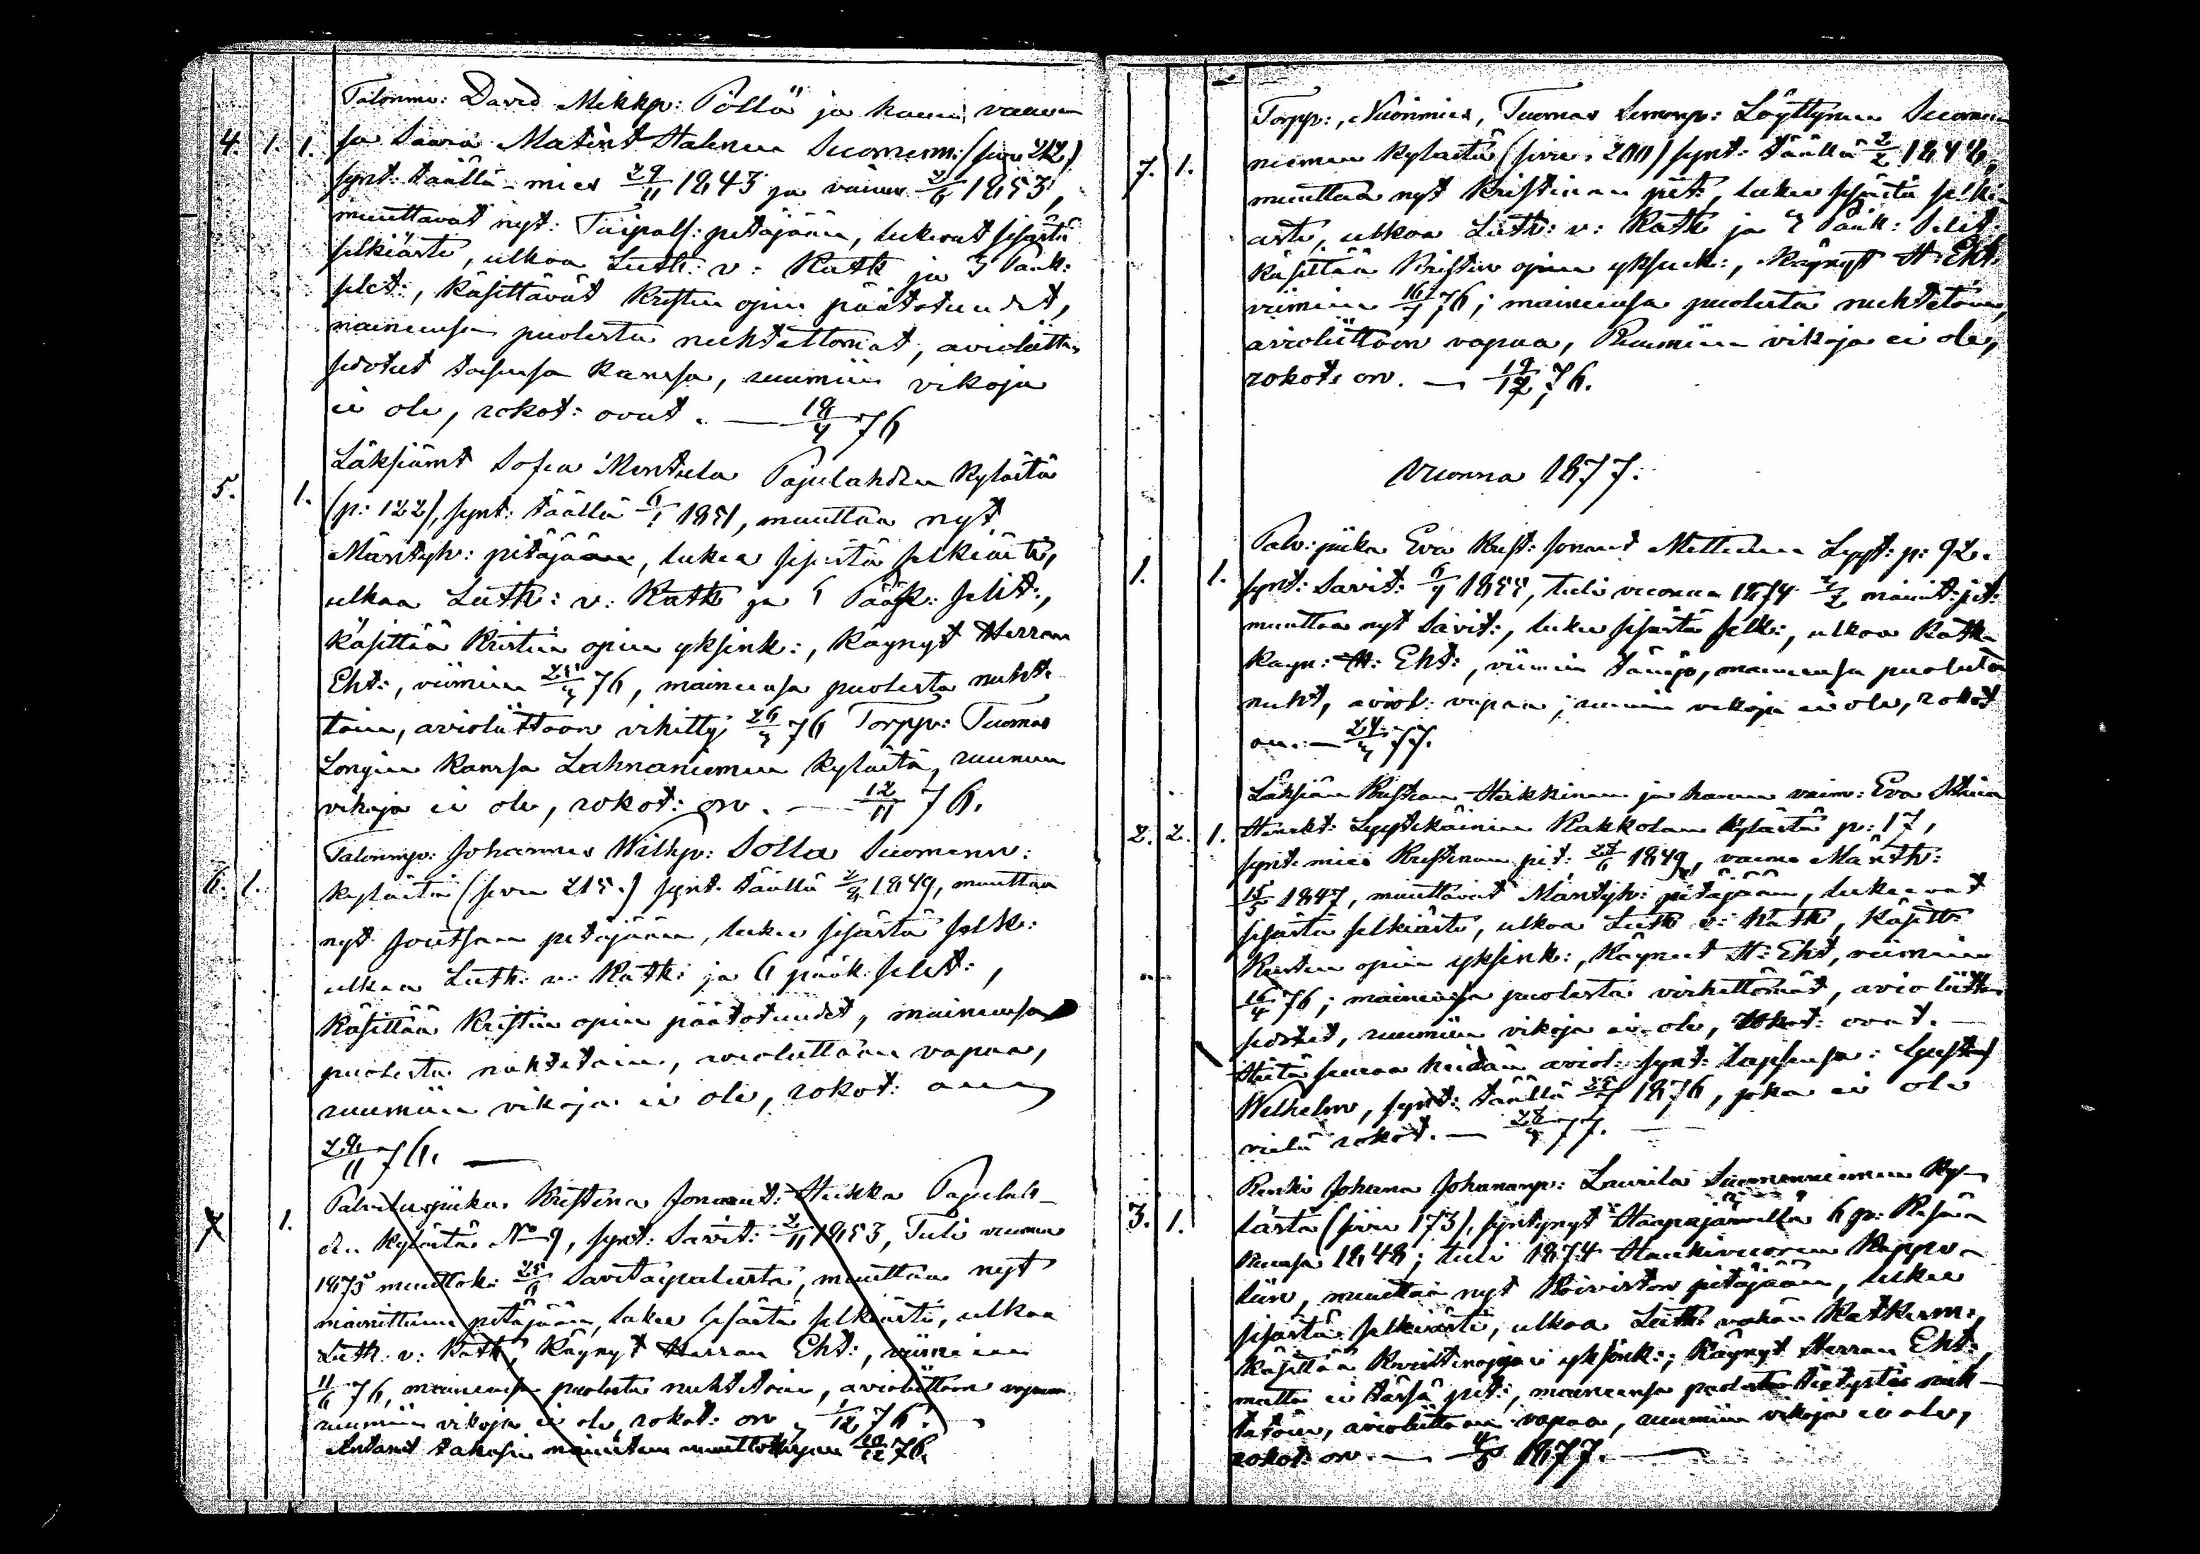 Talonmi: David Mikkp: Pöllä ja hänen vaimon
4. 1. 1. sa Saara Matint Halmen Suomenn: (sivu 212)
synt: täällä - mies 29/11 1843 ja vaimo 1853,
muuttavat nyt: Taipals: pitäjään, lukevat sisästä
selkiästi, ulkoa Luth: v: Katk ja 3 Pääk:
selit:, käsittävät Kristin opin päätotuudet,
maineensa puolesta nuhtettomat, avioliitt.
sidotut toisensa kanssa, ruumiin vikoja
ei ole, rokot: ovat. — 18/4 76
Läksiämt Sofia Montula Pajulahden kylästä
5. 1. (p: 122), synt: täällä 6/1 1851, muuttaa nyt
Mäntyh: pitäjään, lukee sisästä selkiästi,
ulkoa Luth: v: Katk ja 5 Pääk: selit:,
käsittää Kristin opin yksink:, käynyt Herran
Eht:, viimein 76, maineensa puolesta nuhte-
toin, avioliittoon vihitty 26/3 76 Torpp: Tuomas
Longin kanssa Lahnaniemen kylästä, ruumin
vikoja ei ole, rokot: on. — 12/11 76.
Talonmp: Johannes Wilhp: Solla Suomenn:
6. 1. kylästä (sivu 215.) synt. täällä 1849, muuttaa
nyt Joutsan pitäjään, lukee sisästä selk:
ulkoa Luth: v: Katk: ja 6 pääk: selit:,
käsittää Kristin opin päätotuudet, maineensa
puolesta nuhtetoin, avioliittoon vapaa,
ruumiin vikoja ei ole, rokot: on
29/11 76. —
Palveluspiika Kristina Jonaant: Hukka Pajulah-
7 1. den kylästä No 9, synt: Savit: 2/11 1853, Tuli vuonna
1875 muuttok: Savitaipaleesta, muuttaa nyt
mainittuun pitäjään, lukee sisästä selkiästi, ulkoa
Luth: v: Katk, käynyt Herran Eht:, viimein
11/6 76, maineensa puolesta nuhtetoin, avioliittoon vapaa
ruumiin vikoja ei ole, rokot: on, 1/12 76.
Antanut takasin mainitun muuttokirjan 76.
Torpp:, Nuorimies, Tuomas Simonp: Löyttynen Suomen
7. 1. niemen kylästä (sivu: 200) synt: täällä 2/2 1844,
muuttaa nyt Kristinan pit:, lukee sisästä selki
ästi, ulkoa Luth: v: Katk ja Pääk: Selit:
Käsittää Kristin opin yksink:, Käynyt H: Eht:
viimein 16/7 76; maineensa puolesta nuhtetoin,
avioliittoon vapaa, Ruumiin vikoja ei ole,
rokot: on. — 19/12 76.
Vuonna 1877:
Palv: piika Eva Krist: Jonant Mettinen Lyyt: p: 92.
1. 1. synt: Savit: 1855, tuli vuonna 1874 mainit: pit:
muuttaa nyt Savit:, lukee sisästä selk:, ulkoa Katk.
käyn: H: Eht:, viimein tänäp, maineensa puolesta
nuht, aviol: vapaa; ruumin vikoja ei ole, rokot
on. — 24/3 77.
Läksiäm Kristian Heikkinen ja hänen vaim: Eva Stina
2. 2. 1. Henrikt: Lyytikäinen Kakkolan kylästä p: 17,
synt: mies Kristinan pit: 1849, vaimo Mänth:
15/5 1847, muuttavat Mäntyh: pitäjään, lukeevat
sisästä selkiästi, ulkoa Luth v: Katk, Käsitt:
Kristin opin yksink:, Käyneet H: Eht, viimein
76; maineensa puolesta virhettömät, avioliittoon
sidotut, ruumiin vikoja ei ole, rokot: ovat. —
Heitä seuraa heidän aviol: synt: lapsensa: Gustaf
Wilhelm, synt: täällä 1876, joka ei ole
vielä rokot. — 77. —
Renki Johana Johananp: Laurila Suomenniemen Ky-
3. 1. lästä (sivu 173), syntynyt Haapajärvellä 6 p: Kesä
kuusa 1848; tuli 1874 Haukivuoren Kappe-
liin, muuttaa nyt Koiviston pitäjään, lukee
sisästä selkiästi, ulkoa Luth: vähän Katkism:,
käsittää Kristinoppia yksink:; Käynyt Herran Eht:,
mutta ei tässä pit:, maineensa puolesta tietystis nuh-
tetoin, avioliittoon vapaa, ruumiin vikoja ei ole,
rokot: on. — 1877. —